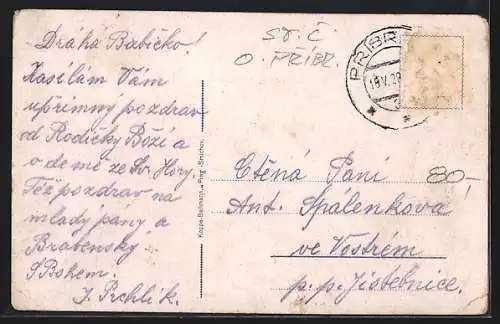 Dráhá Babičko!
Zasélám Vám
upřimný pozdrav
od Rodičky Boží a
o de mě ze Sv. Hory.
Též pozdrav na
mladý pány a
Brabenský
S Bohem.
J. Prchlík.
ST. Č
O. PŘÍBR.
PŘÍBR
19.V.29
Ctěná Paní
Ant. Spálenková
ve Vostrém
p. p. Jistebnice.
80-